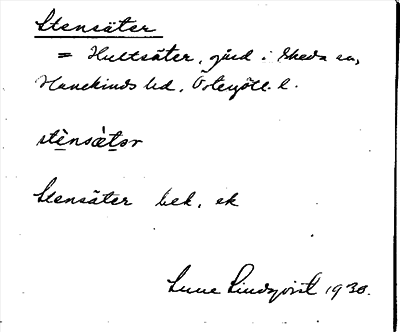 Stensäter
= Hultsäter, gård i Skeda sn,
Hanekinds hd, Östergötl. l.
stènsæ̀tər
Stensäter bek. sk
Sune Lindqvist 1930.